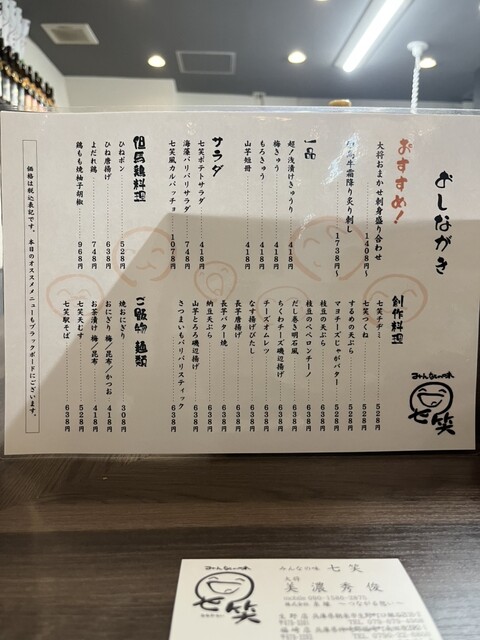 おしながき
おすすめ！
大将おまかせ刺身盛り合わせ 1408円〜
牛霜降り炙り刺し 1738円〜
一品
超！浅漬けきゅうり 418円
梅きゅう 418円
もろきゅう 418円
山芋短冊 418円
サラダ
七笑ポテトサラダ 418円
海藻パリパリサラダ 748円
七笑風カルパッチョ 1078円
但馬鶏料理
ひねポン 528円
ひね唐揚げ 638円
よだれ鶏 748円
鶏もも焼柚子胡椒 968円
創作料理
七笑チヂミ 528円
七笑つくね 528円
するめの天ぷら 528円
マヨチーズじゃがバター 528円
枝豆の天ぷら 638円
枝豆のペペロンチーノ 638円
だし巻き明石風 638円
ちくわチーズ磯辺揚げ 638円
チーズオムレツ 638円
なす揚げびたし 638円
長芋唐揚げ 638円
長芋バター焼 638円
納豆天ぷら 638円
山芋とろろ磯辺揚げ 638円
さつまいもパリパリスティック 638円
ご飯物 麺類
焼おにぎり 308円
おにぎり 梅／昆布／かつお 418円
お茶漬け 梅／昆布 418円
七笑天むす 528円
七笑駅そば 638円
価格は税込表記です。本日のオススメメニューもブラックボードにございます。
みんなの味
七笑
みんなの味
七笑
みんなの味 七笑
大将
美濃秀俊
〜つながる想い〜